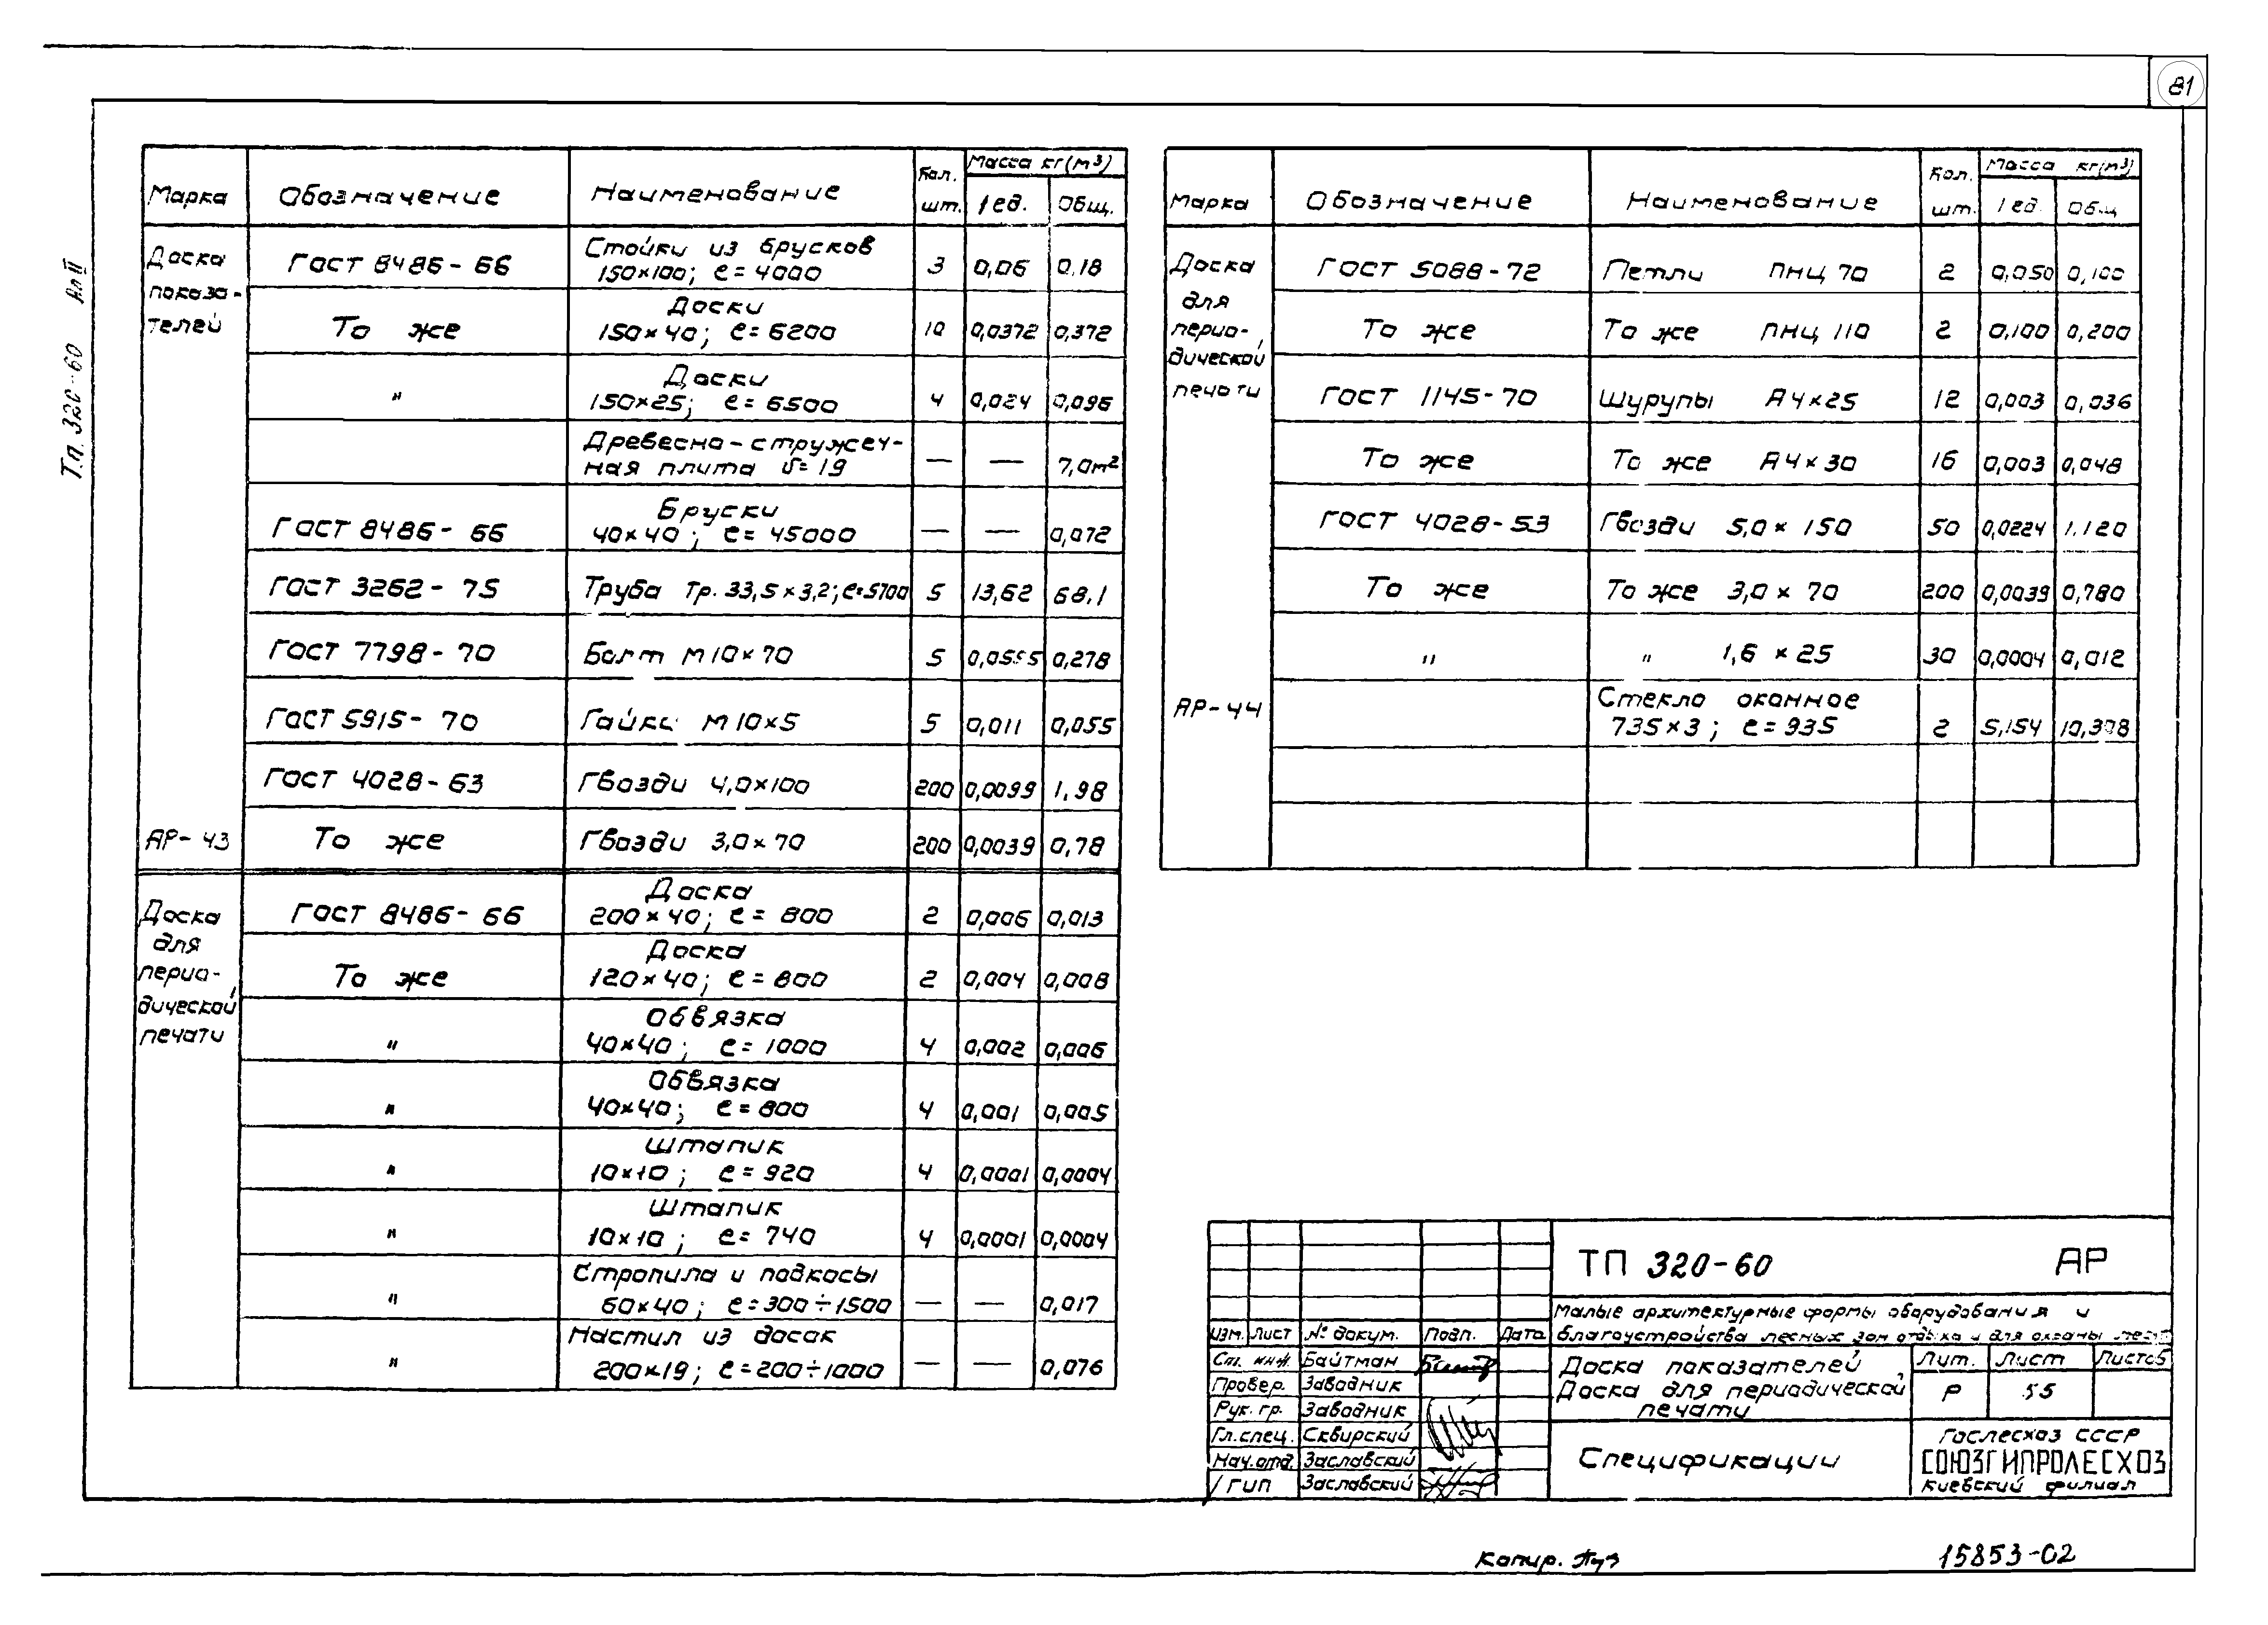 81
Т.п. 320-60 Ал II
Марка Обозначение Наименование Кол. шт. Масса кг(м³) 1ед. Общ.
Доска показателей ГОСТ 8486-66 Стойки из брусков 150×100; ℓ=4000 3 0,06 0,18
То же Доски 150×40; ℓ=6200 10 0,0372 0,372
" Доски 150×25; ℓ=6500 4 0,024 0,096
Древесно-стружечная плита δ=19 — — 7,0м²
ГОСТ 8486-66 Бруски 40×40; ℓ=45000 — — 0,072
ГОСТ 3262-75 Труба Тр. 33,5×3,2; ℓ=5700 5 13,62 68,1
ГОСТ 7798-70 Болт М10×70 5 0,0555 0,278
ГОСТ 5915-70 Гайка М10×5 5 0,011 0,055
ГОСТ 4028-63 Гвозди 4,0×100 200 0,0099 1,98
АР-43 То же Гвозди 3,0×70 200 0,0039 0,78
Доска для периодической печати ГОСТ 8486-66 Доска 200×40; ℓ=800 2 0,006 0,013
То же Доска 120×40; ℓ=800 2 0,004 0,008
" Обвязка 40×40; ℓ=1000 4 0,002 0,006
" Обвязка 40×40; ℓ=800 4 0,001 0,005
" Штапик 10×10; ℓ=920 4 0,0001 0,0004
" Штапик 10×10; ℓ=740 4 0,0001 0,0004
" Стропила и подкосы 60×40; ℓ=300÷1500 — — 0,017
" Настил из досок 200×19; ℓ=200÷1000 — — 0,076
Марка Обозначение Наименование Кол. шт. Масса кг(м³) 1ед. Общ
Доска для периодической печати ГОСТ 5088-72 Петли ПНЦ 70 2 0,050 0,100
То же То же ПНЦ 110 2 0,100 0,200
ГОСТ 1145-70 Шурупы А4×25 12 0,003 0,036
То же То же А4×30 16 0,003 0,048
ГОСТ 4028-53 Гвозди 5,0×150 50 0,0224 1,120
То же То же 3,0×70 200 0,0039 0,780
" " 1,6×25 30 0,0004 0,012
АР-44 Стекло оконное 735×3; ℓ=935 2 5,154
ТП 320-60 АР
Малые архитектурные формы оборудования и
благоустройства лесных зон отдыха и для охраны
Изм. Лист № докум. Подп. Дата
Ст. инж. Байтман
Провер. Заводник
Рук. гр. Заводник
Гл. спец. Сквирский
Нач. отд. Заславский
ГИП Заславский
Доска показателей,
Доска для периодической
печати
Лит. Лист Листов
Р 55
Спецификации
Гослесхоз СССР
СОЮЗГИПРОЛЕСХОЗ
Киевский филиал
Копир.
15853-02